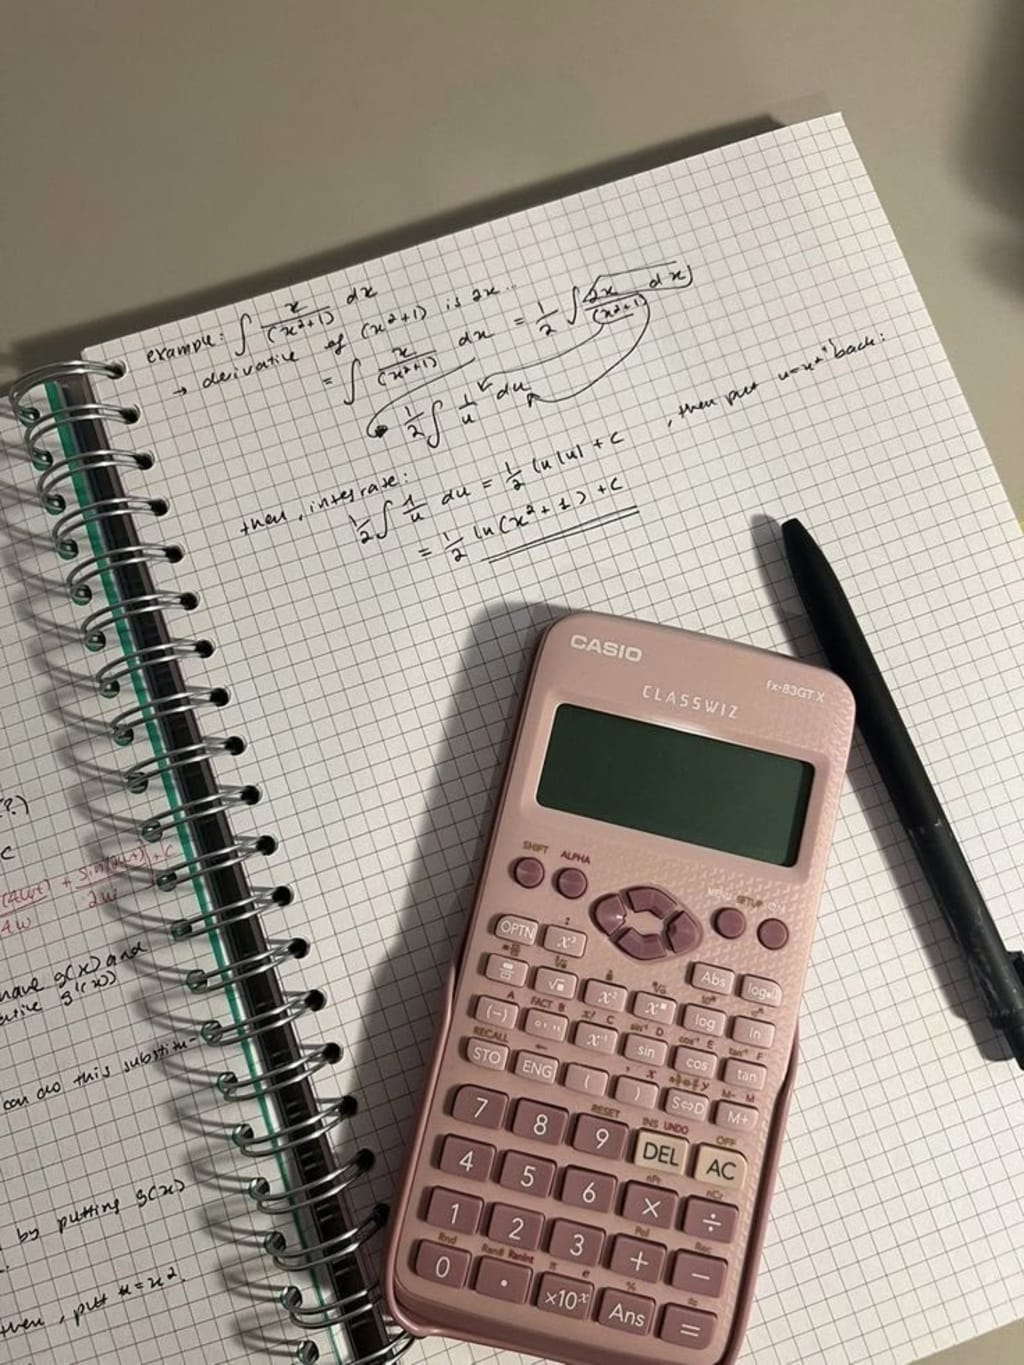 example: ∫ x/(x²+1) dx
→ derivative of (x²+1) is 2x...
= ∫ x/(x²+1) dx = 1/2 ∫ 2x/(x²+1) dx
1/2 ∫ 1/u du
, then put u=x²+1 back:
then, integrate:
1/2 ∫ 1/u du = 1/2 ln|u| + C
= 1/2 ln(x²+1) + C
(?)
C
(4wt)/4w + sin(2wt)/2w + C
have g(x) and
g'(x))
can do this substitu-
by putting g(x)
then, put u=x²
CASIO
fx-83GT X
CLASSWIZ
SHIFT ALPHA MENU SETUP ON
OPTN Abs
log ln
FACT B C sin⁻¹ D cos⁻¹ E tan⁻¹ F
(−) x⁻¹ sin cos tan
RECALL
STO ENG ( ) S⇔D M+
RESET INS UNDO OFF
7 8 9 DEL AC
nPr nCr
4 5 6 × ÷
Pol Rec
1 2 3 + −
Rnd Ran# RanInt π e % ≈
0 . ×10ˣ Ans =